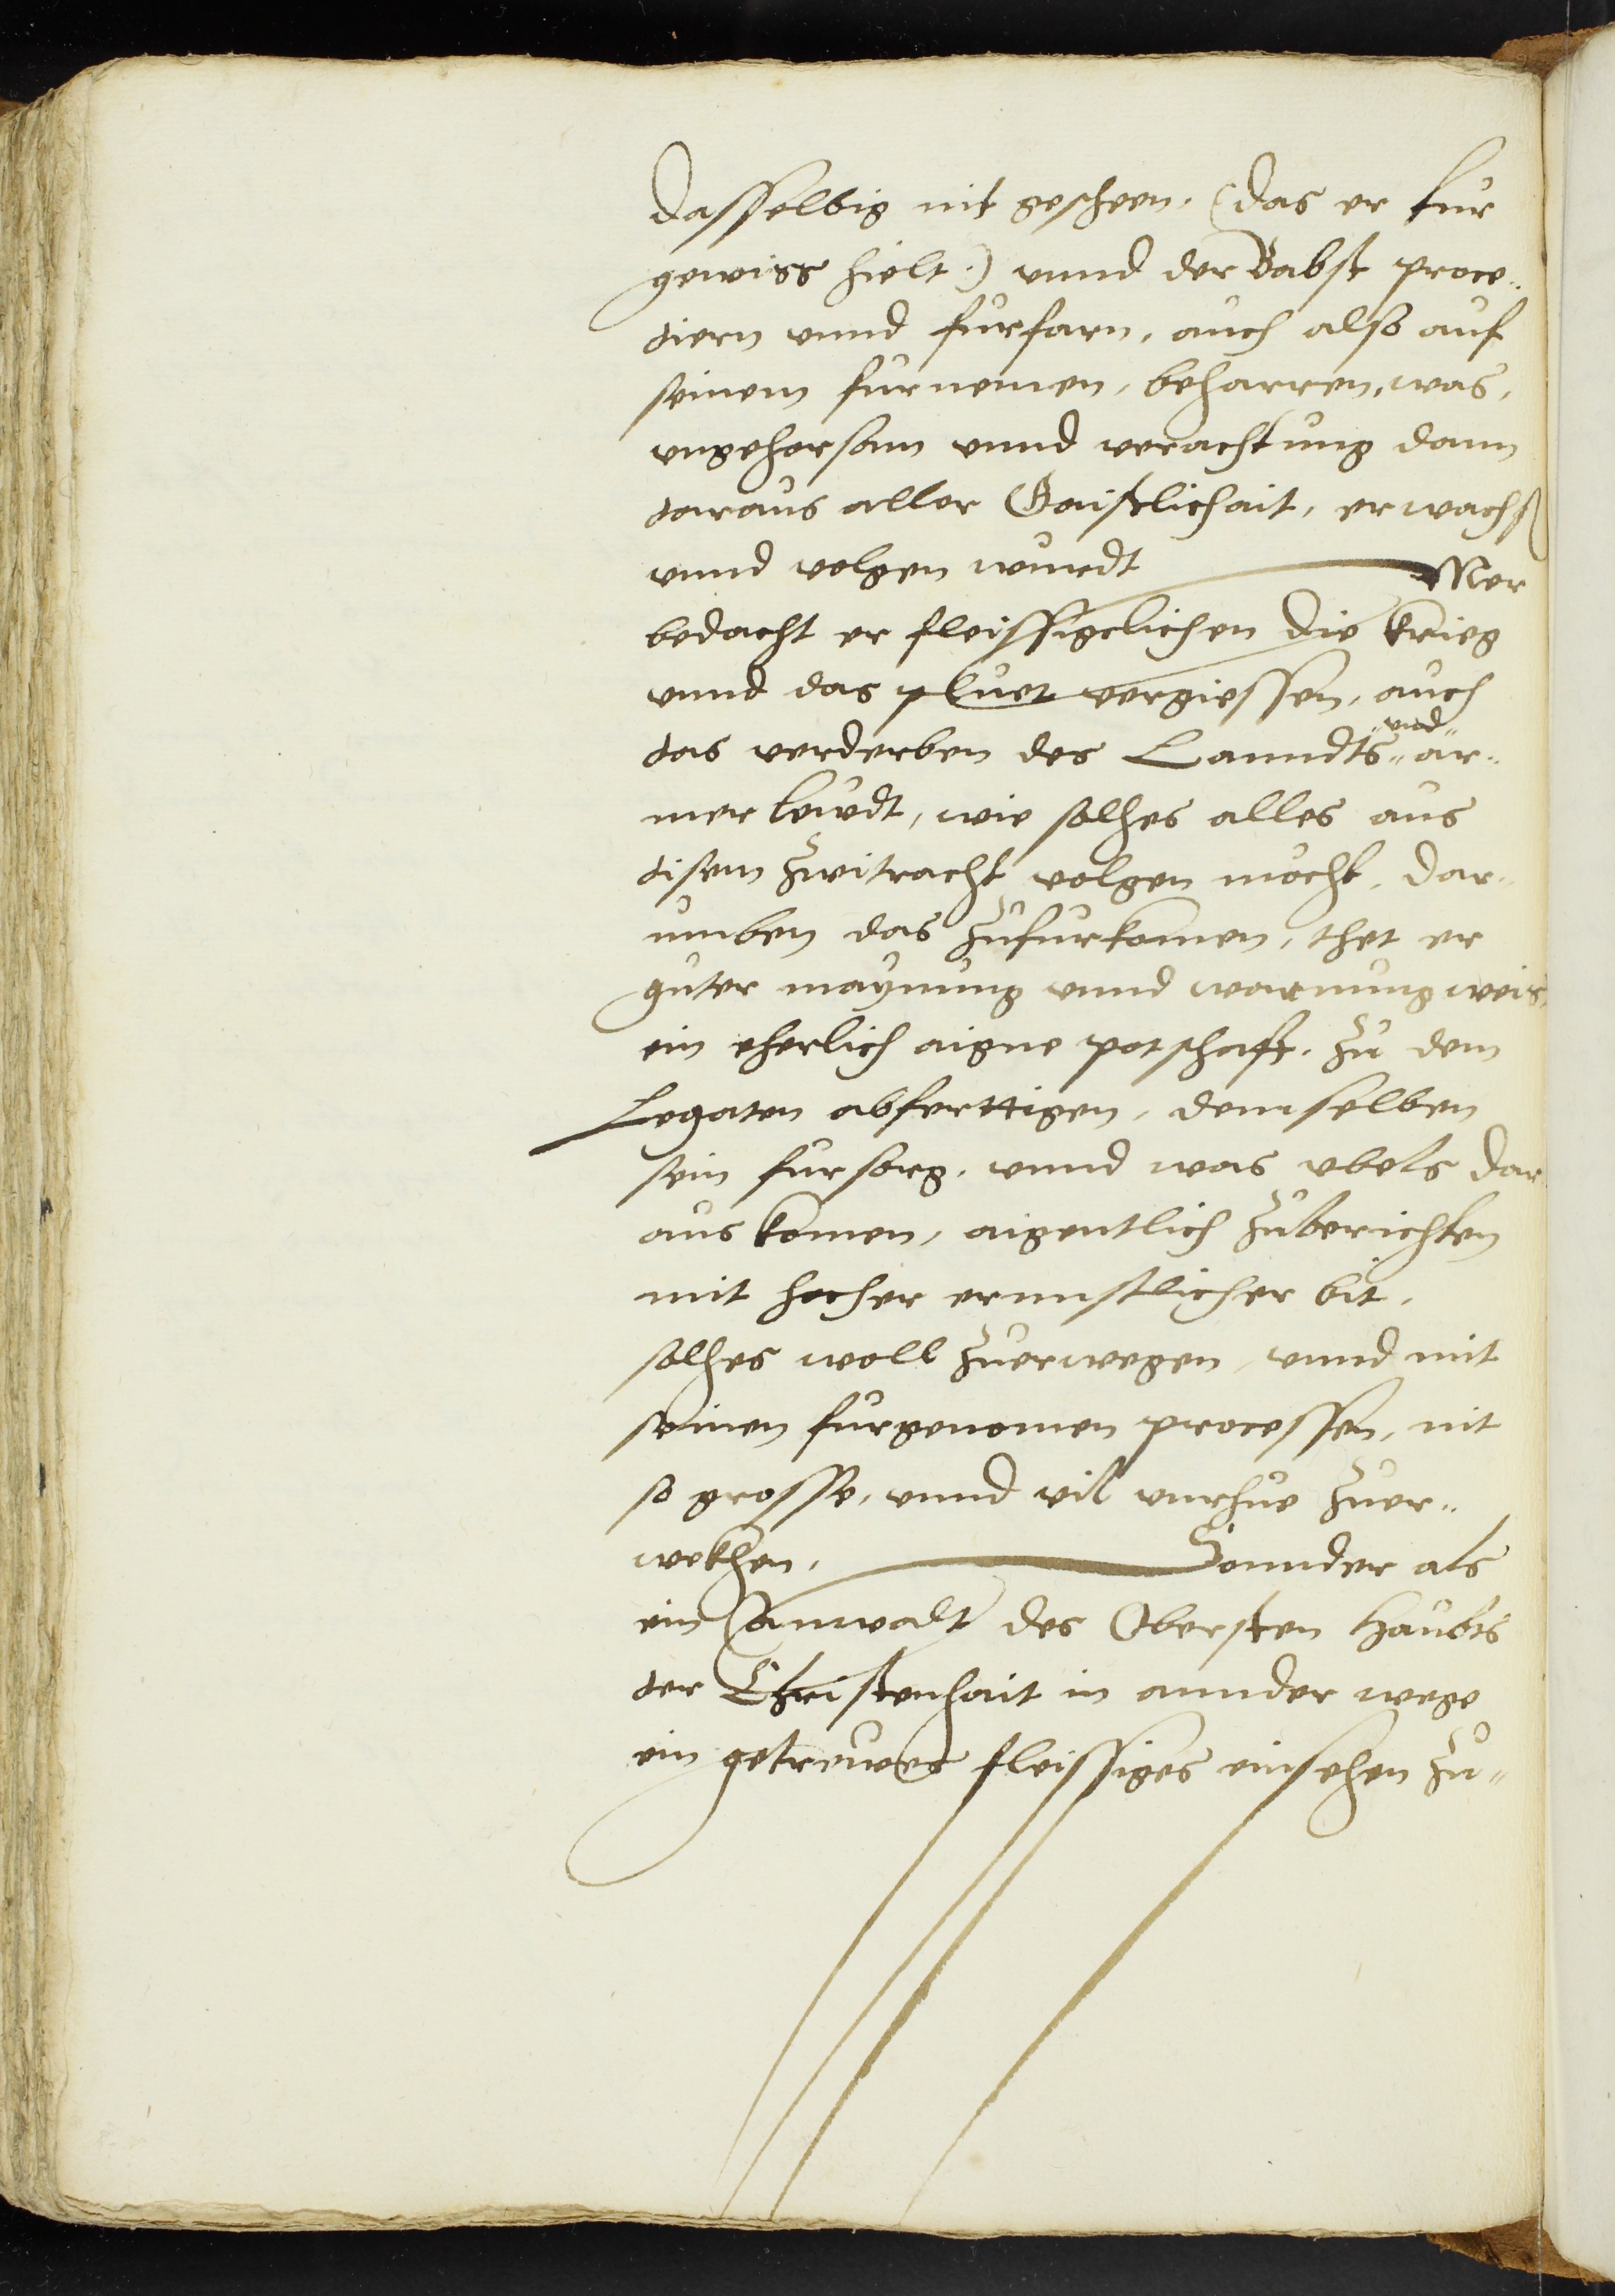 dasselbig nit gescheen, (das er fur
gewiss hielt:) vnnd der Babst proce„
diern vnnd furfarn, auch also auf
seinem furnemen, beharren, was,
vngehorsam vnnd verachtung dann
daraus aller Gaistlichait, erwachß
vnnd volgen wurdt Mer
bedacht er fleissigclichen die krieg
vnnd das pluet vergiessen, auch
das verderben des Lanndts „vnd„ ar„
mer leudt, wie solhes alles aus
disem zwitracht volgen mocht, dar„
umben das zufurkomen, thet er
guter maynung vnnd warnung weis,
ein eherlich aigne potschaft, zu dem
Legaten abferttigen, demselben
sein fursorg, vnnd was vbels dar
aus komen, aigentlich zuberichten
mit hocher ernnstlicher bit,
solhes woll zuerwegen, vnnd mit
seinen furgenomen processen, nit
so grosse, vnnd vil vnrhue zuer„
wekhen, Sonnder als
ein Anwalt des Obersten Haubts
der Christenhait in annder wege
ein getreuwes fleissiges einsehen zu„